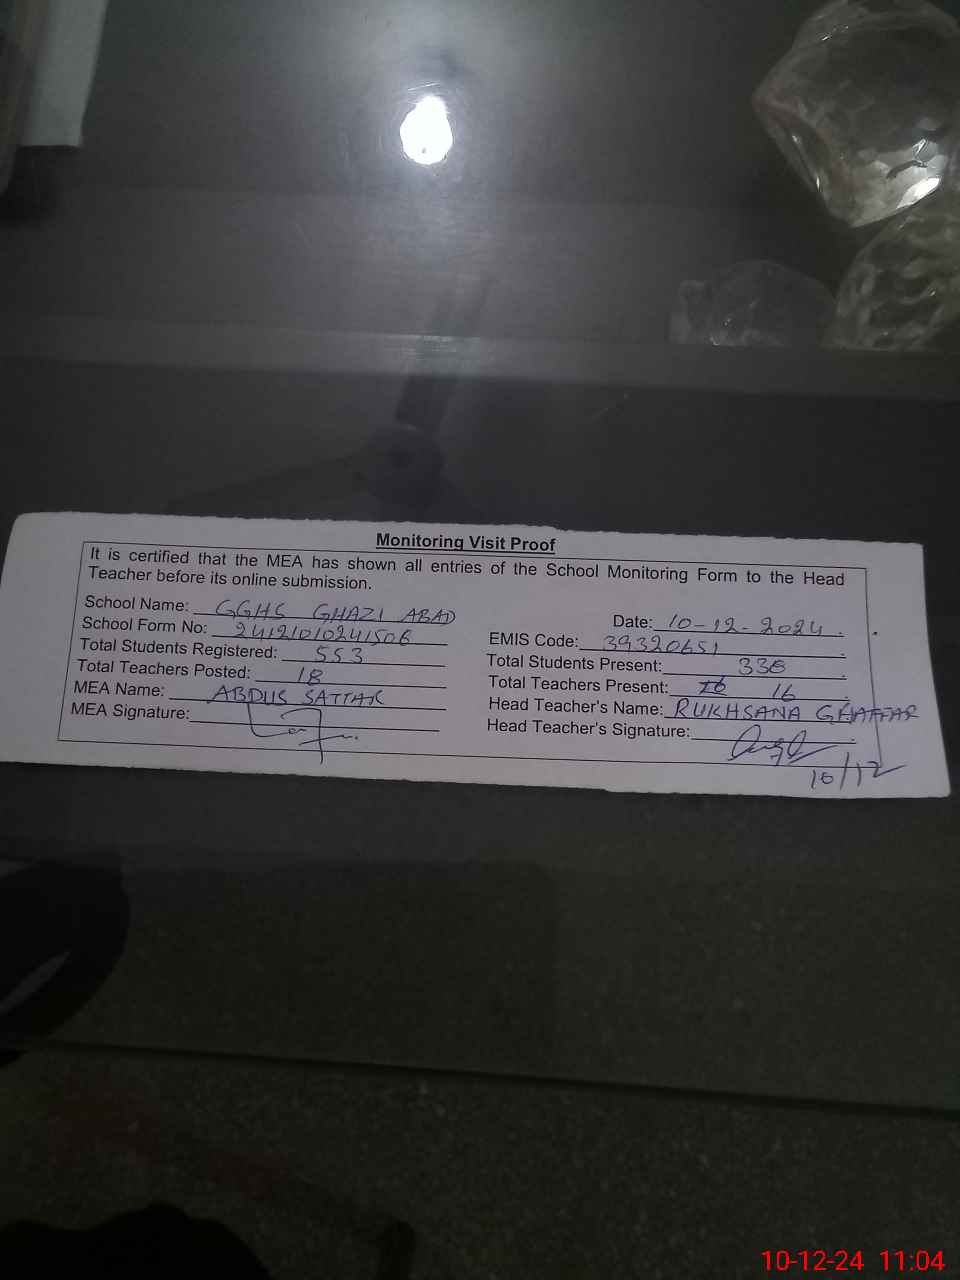 Monitoring Visit Proof
It is certified that the MEA has shown all entries of the School Monitoring Form to the Head
Teacher before its online submission.
School Name: GGHS GHAZI ABAD
Date: 10-12-2024
School Form No: 24121010241506
EMIS Code: 39320651
Total Students Registered: 553
Total Students Present: 338
Total Teachers Posted: 18
Total Teachers Present: 16
MEA Name: ABDUS SATTAR
Head Teacher's Name: RUKHSANA GHAFFAR
MEA Signature:
Head Teacher's Signature:
10/12
10-12-24 11:04